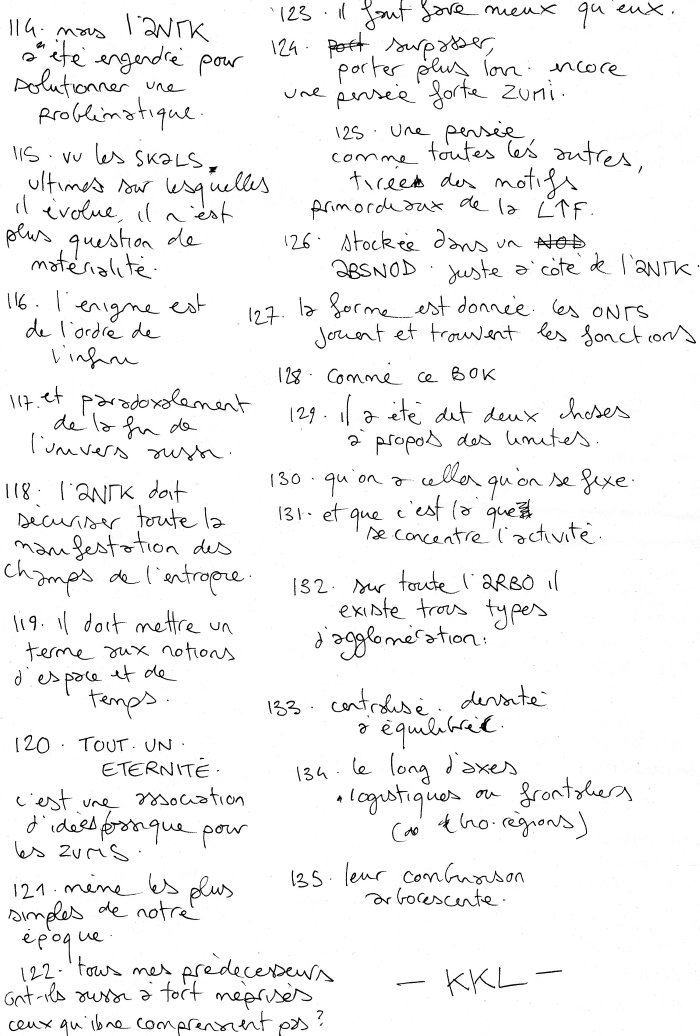 114. mais l'ANTK
a été engendré pour
solutionner une
problématique.
115. vu les SKALS
ultimes sur lesquelles
il évolue, il n'est
plus question de
matérialité.
116. l'enigme est
de l'ordre de
l'infini
117. et paradoxalement
de la fin de
l'univers aussi.
118. l'ANTK doit
sécuriser toute la
manifestation des
champs de l'entropie.
119. il doit mettre un
terme aux notions
d'espace et de
temps.
120. TOUT. UN.
ETERNITÉ.
c'est une association
d'idées presque pour
les ZUMIS.
121. même les plus
simples de notre
époque.
122. tous mes prédécesseurs
ont-ils aussi à tort méprisés
ceux qu'ils ne comprenaient pas?
123. il faut faire mieux qu'eux.
124. surpasser,
porter plus loin encore
une pensée forte ZUMI.
125. une pensée,
comme toutes les autres,
tirée des motifs
primordiaux de la L↑F.
126. stockée dans un NOD
ABSNOD. juste à côté de l'ANTK.
127. la forme est donnée. les ONTS
jouent et trouvent les fonctions
128. comme ce BOK
129. il a été dit deux choses
à propos des limites.
130. qu'on a celles qu'on se fixe.
131. et que c'est là que
se concentre l'activité.
132. sur toute l'ARBO il
existe trois types
d'agglomération:
133. centralisé. densité
à équilibrée.
134. le long d'axes
logistiques ou frontaliers
bio.régions)
135. leur combinaison
arborescente.
— KKL —